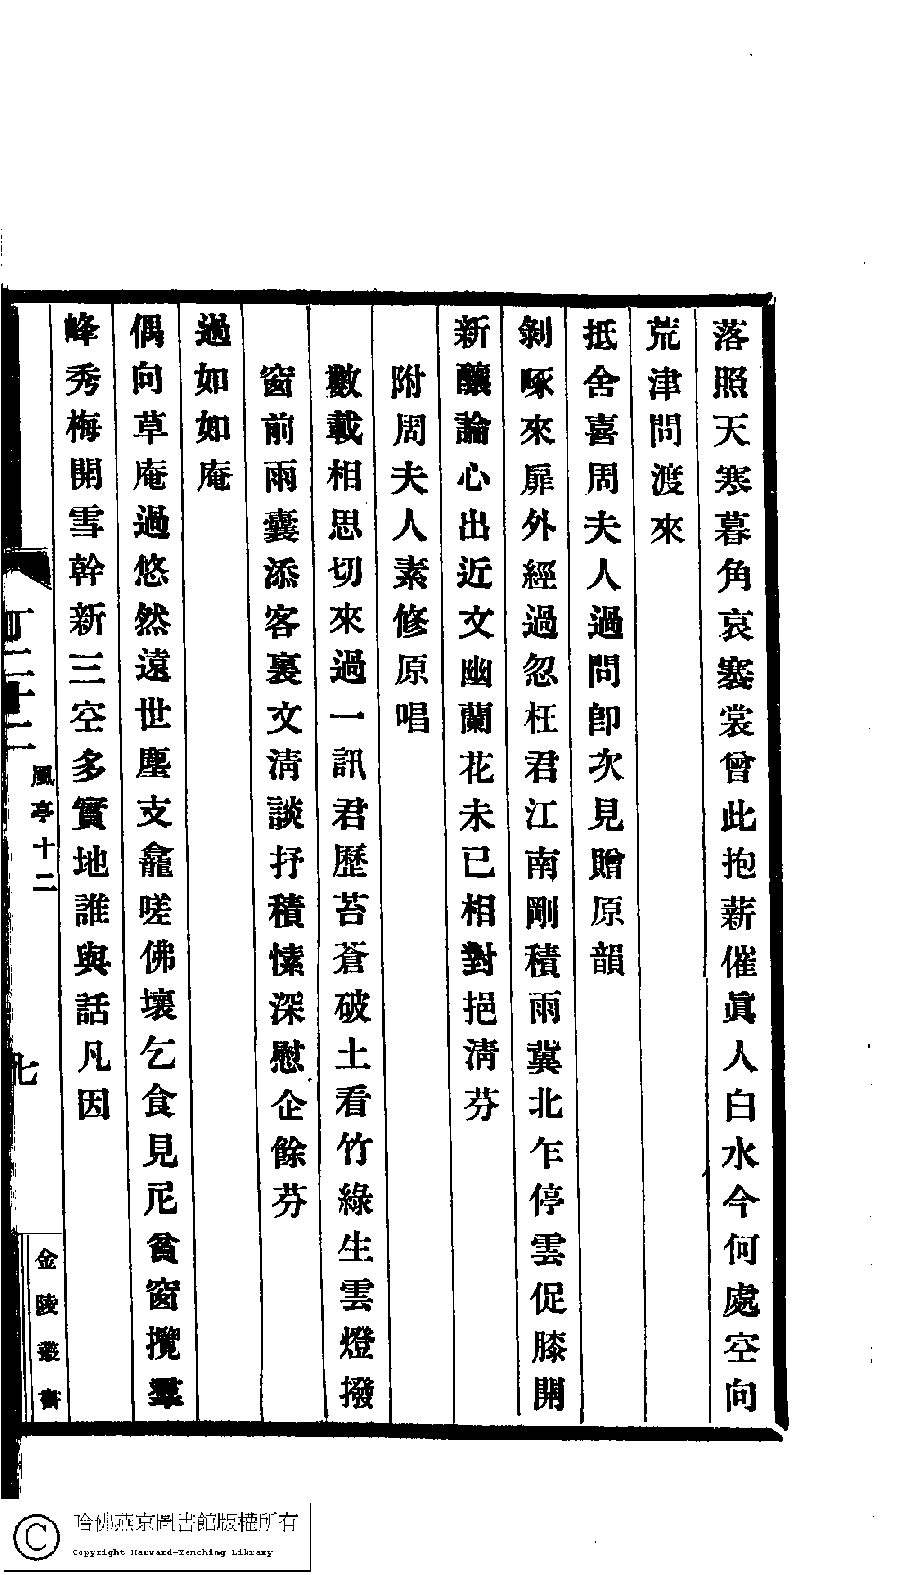 落照天寒暮角哀褰裳曾此抱薪催眞人白水今何處空向
荒津問渡來
抵舍喜周夫人過問卽次見贈原韻
剝啄來扉外經過忽枉君江南剛積雨冀北乍停雲促膝開
新釀論心出近文幽蘭花未已相對挹淸芬
附周夫人素修原唱
數載相思切來過一訊君歷苔蒼破土看竹綠生雲燈撥
窗前雨囊添客裏文淸談抒積愫深慰企餘芬
過如如庵
偶向草庵過悠然遠世塵支龕嗟佛壞乞食見尼貧窗攬羣
峰秀梅開雪幹新三空多實地誰與話凡因
丁二十二
風亭十二
七
金陵叢書
哈佛燕京圖書館版權所有
Copyright Harvard-Yenching Library